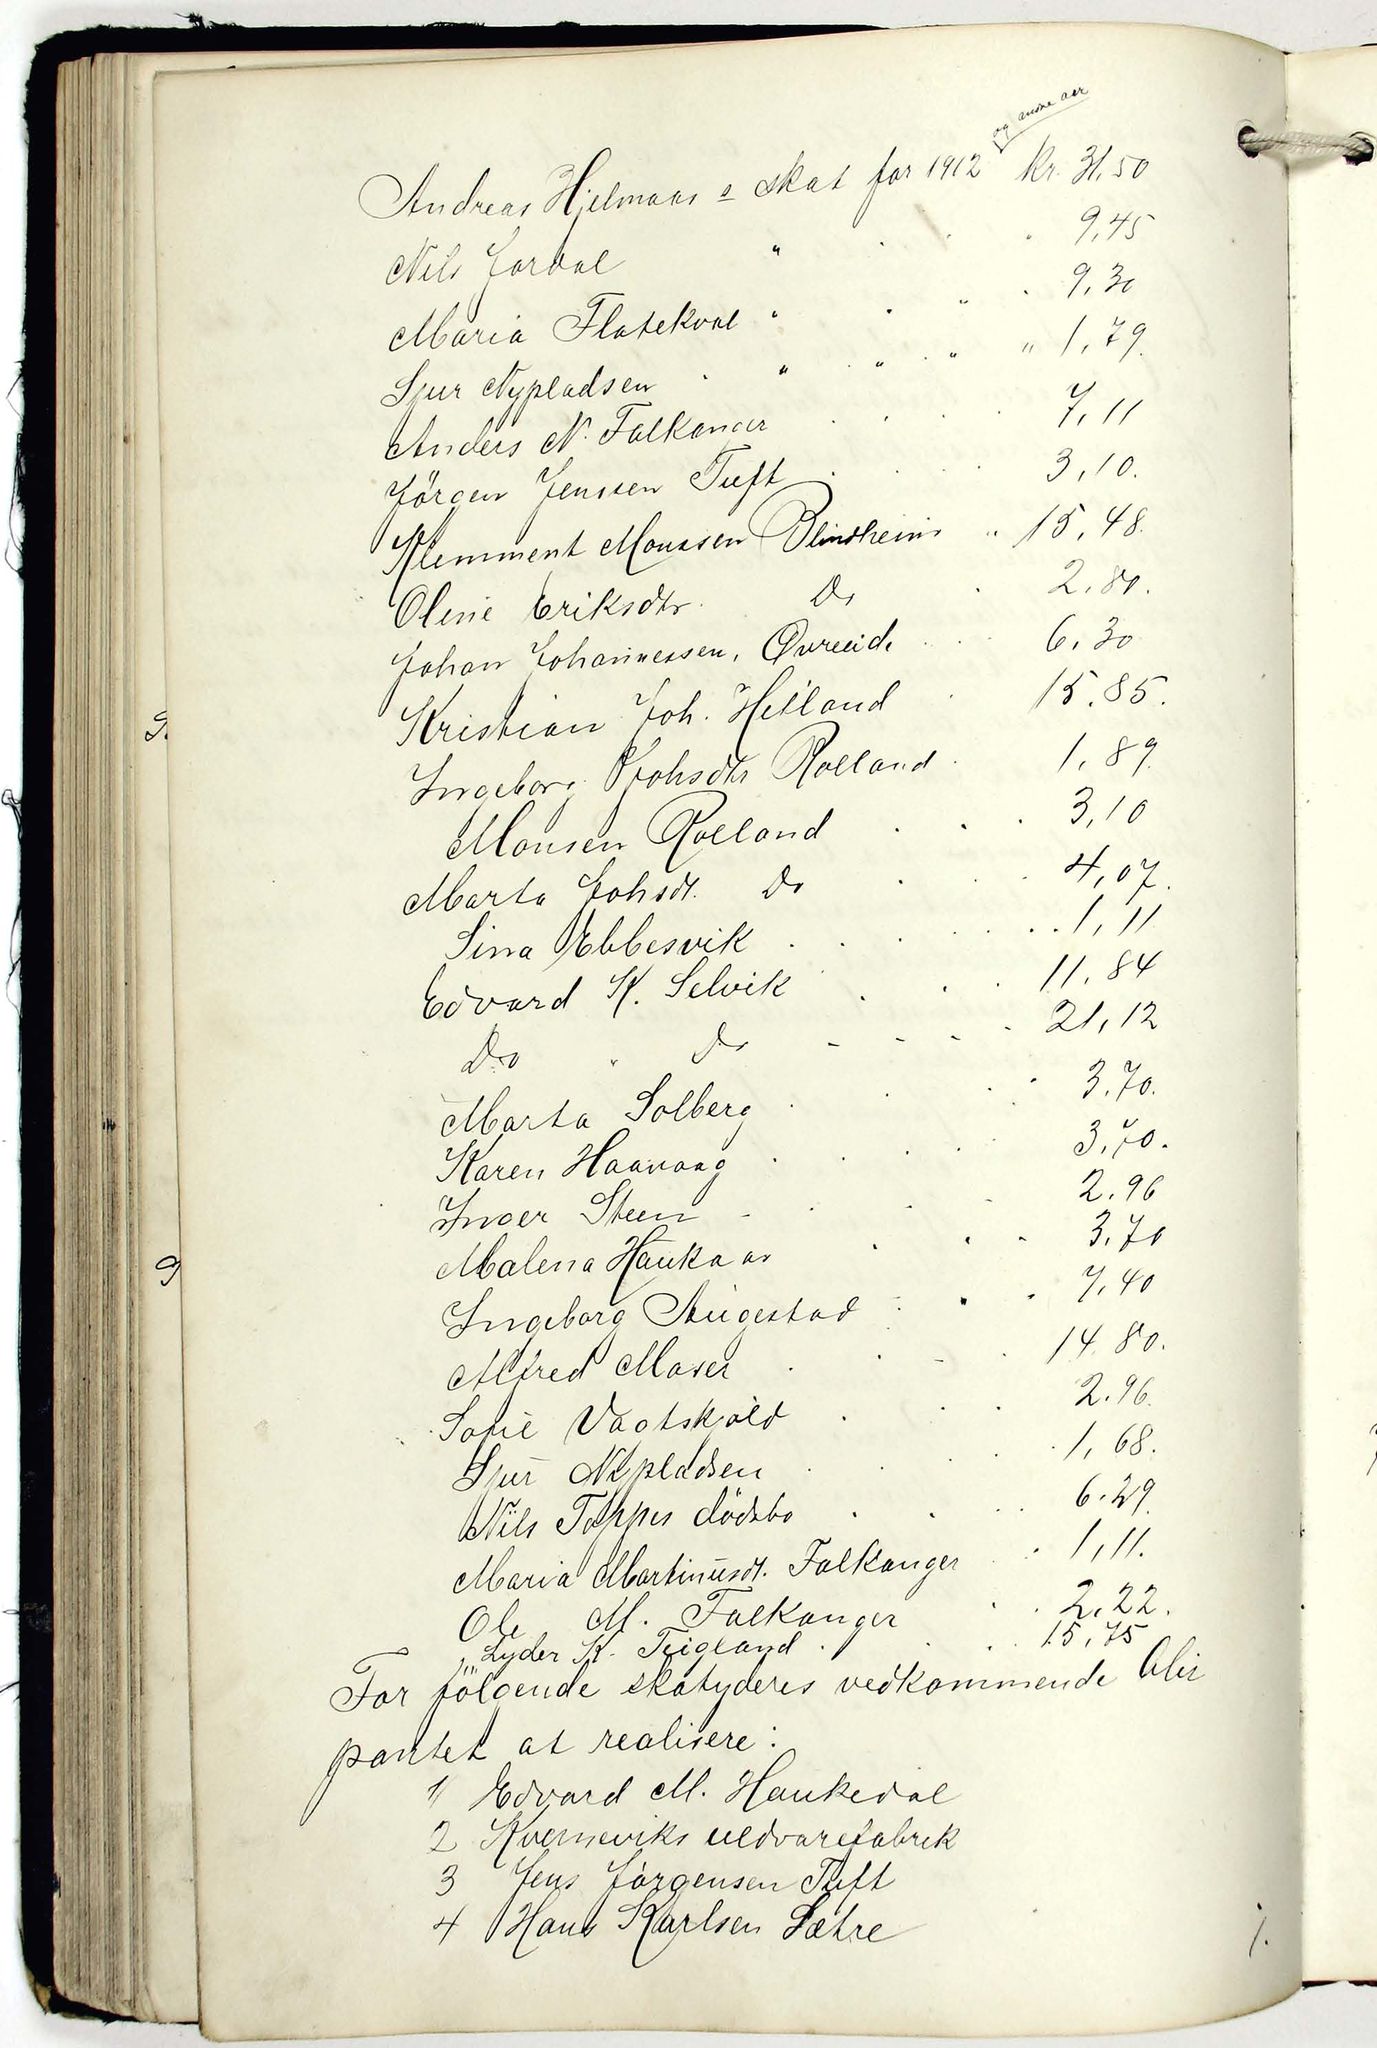 og andre aar
Andreas Hjelmaas s skat for 1912 kr. 31,50
Nils Jordal " . . . 9,45
Maria Flatekval " . " . 9,30
Sjur Nypladsen . " " . " " 1,79.
Anders N. Falkanger . . . . 7,11
Jörgen Jenssen Tuft . . . . 3,10.
Klemment Monssen Blindheim " 15,48.
Oline Eriksdtr. Do . 2.80.
Johan Johannessen, Øvreeide . . 6,30
Kristian Joh. Hetland . 15.85.
Ingeborg Johsdtr Rolland . 1,89.
Monsen Rolland . . . 3,10
Marta Johsdt. Do . . . 4,07.
Sina Ebbesvik . . . . . 1,11
Edvard K. Selvik . . . 11,84
Do " Do - - - - 21,12
Marta Solberg . . . 3.70.
Karen Haavaag . . . . 3,70.
Inger Steen - . . - 2.96
Malena Haukaas . . - 3.70
Ingeborg Augestad . . . 7,40
Alfred Moser . . - . 14.80.
Sofie Vagtskjold . . . 2.96.
Sjur Nypladsen . . . . 1,68.
Nils Toppes dödsbo . . . 6.29.
Maria Martinusdt. Falkanger . . 1,11.
Ole M. Falkanger . . 2,22.
Lyder K. Teigland . . . 15,75
For fölgende skatyderes vedkommende blir
pantet at realisere:
1 Edvard M. Haukedal
2 Kverneviks uldvarefabrik
3 Jens Jörgensen Tuft
4 Hans Karlsen Sætre